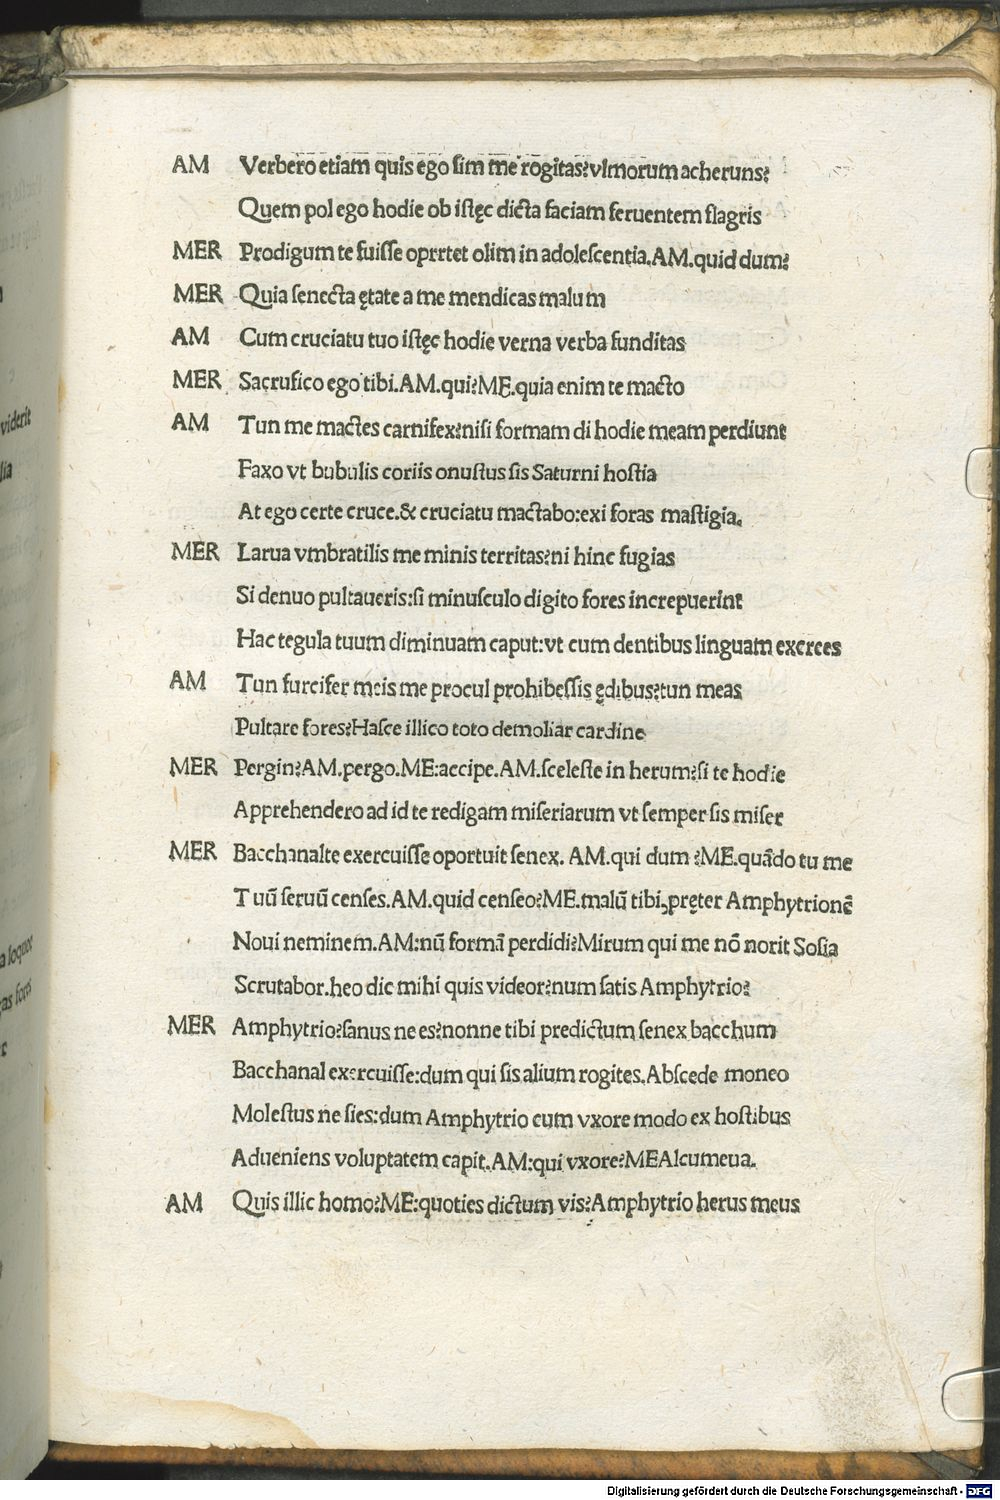 AM Verbero etiam quis ego sim me rogitas?vlmorum acheruns?
Quem pol ego hodie ob istęc dicta faciam feruentem flagris
MER Prodigum te fuisse oprrtet olim in adolescentia.AM.quid dum?
MER Quia senecta ętate a me mendicas malum
AM Cum cruciatu tuo istęc hodie verna verba funditas
MER Sacrufico ego tibi.AM.qui?ME.quia enim te macto
AM Tun me mactes carnifex?nisi formam di hodie meam perdiunt
Faxo vt bubulis coriis onustus sis Saturni hostia
At ego certe cruce.& cruciatu mactabo:exi foras mastigia.
MER Larua vmbratilis me minis territas?ni hinc fugias
Si denuo pultaueris:si minusculo digito fores increpuerint
Hac tegula tuum diminuam caput:vt cum dentibus linguam excrees
AM Tun furcifer meis me procul prohibessis ędibus?tun meas
Pultare fores?Hasce illico toto demoliar cardine
MER Pergin?AM.pergo.ME:accipe.AM.sceleste in herum?si te hodie
Apprehendero ad id te redigam miseriarum vt semper sis miser
MER Bacchanalte exercuisse oportuit senex. AM.qui dum ?ME.quãdo tu me
Tuũ seruũ censes.AM.quid censeo?ME.malũ tibi,pręter Amphytrionẽ
Noui neminem.AM:nũ formã perdidi?Mirum qui me nõ norit Sosia
Scrutabor.heo dic mihi quis videor?num satis Amphytrio?
MER Amphytrio?sanus ne es?nonne tibi predictum senex bacchum
Bacchanal exercuisse:dum qui sis alium rogites.Abscede moneo
Molestus ne sies:dum Amphytrio cum vxore modo ex hostibus
Adueniens voluptatem capit.AM:qui vxore?MEAlcumeua.
AM Quis illic homo?ME:quoties dictum vis?Amphytrio herus meus
viderit
sia
a loquor
as fores
7
Digitalisierung gefördert durch die Deutsche Forschungsgemeinschaft - DFG